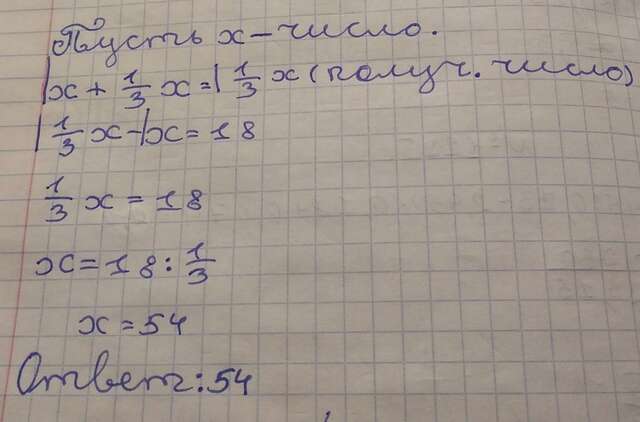 Пусть x – число.
1x + 1/3 x = 1 1/3 x (получ. число)
1 1/3 x – 1x = 18
1/3 x = 18
x = 18 : 1/3
x = 54
Ответ: 54